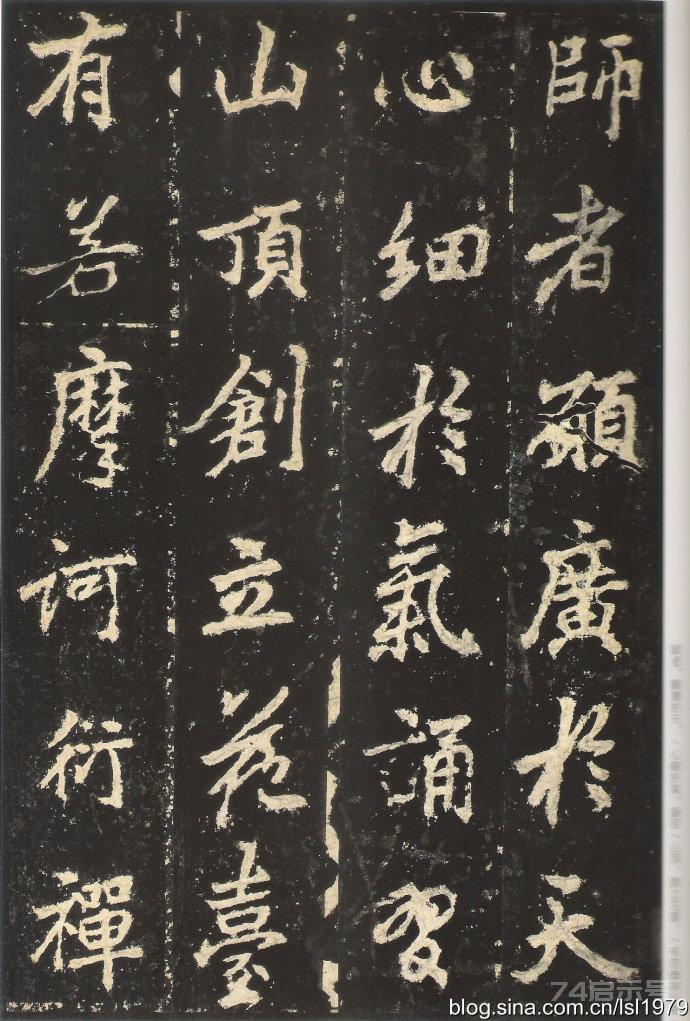 師者願廣於天
心細於氣誦習
山頂創立花臺
有若摩訶衍禪
74启示号
blog.sina.com.cn/lsl1979